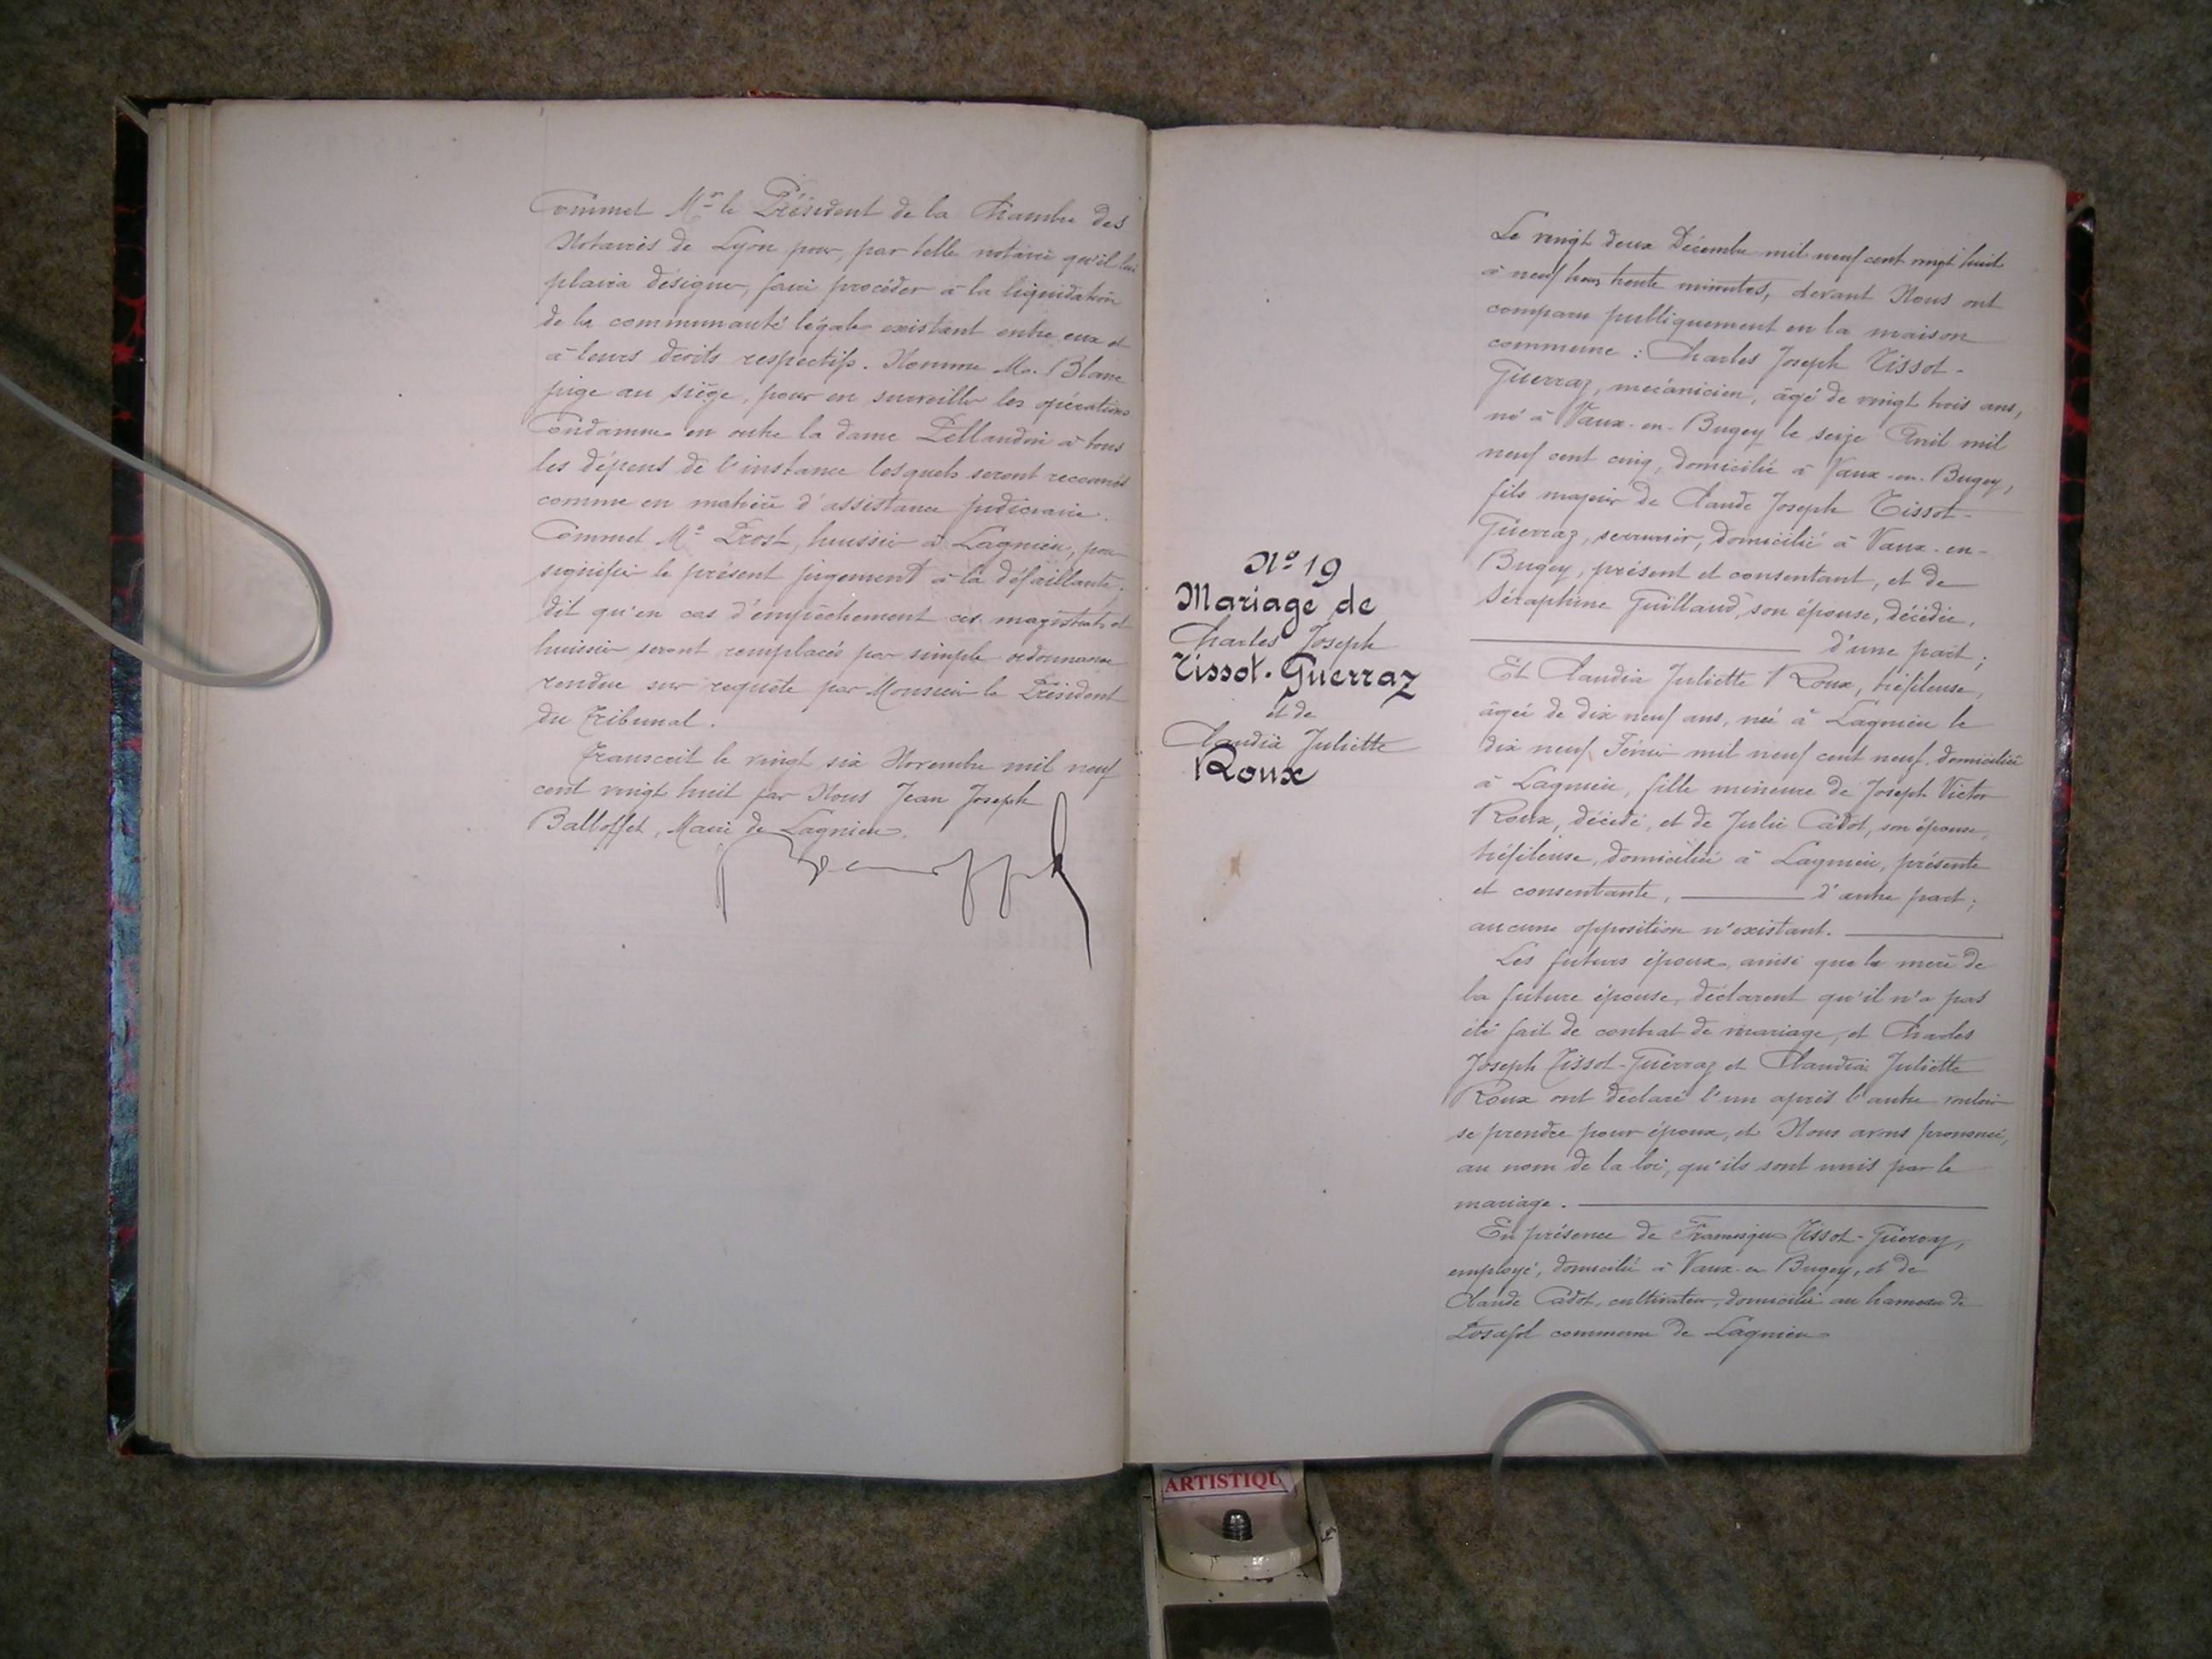 Commet Mr le Président de la Chambre des
Notaires de Lyon pour, par telle notaire qu'il lui
plaira désigner, faire procéder à la liquidation
de la communauté légale existant entre eux et
à leurs droits respectifs. Nomme Mr. Blanc
juge au siège, pour en surveiller les opérations
Condamne en outre la dame Pellandin à tous
les dépens de l'instance lesquels seront recouvrés
comme en matière d'assistance judiciaire.
Commet Me Prost, huissier à Lagnieu, pour
signifier le présent jugement à la défaillante,
dit qu'en cas d'empêchement ces magistrats et
huissier seront remplacés par simple ordonnance
rendue sur requête par Monsieur le Président
du Tribunal.
Transcrit le vingt six Novembre mil neuf
cent vingt huit par Nous Jean Joseph
Balloffet, Maire de Lagnieu.
No 19
Mariage de
Charles Joseph
Tissot-Guerraz
et de
Claudia Juliette
Roux
Le vingt deux Décembre mil neuf cent vingt huit
à neuf heures trente minutes, devant Nous ont
comparu publiquement en la maison
commune : Charles Joseph Tissot-
Guerraz, mécanicien, âgé de vingt trois ans,
né à Vaux-en-Bugey le seize Avril mil
neuf cent cinq, domicilié à Vaux-en-Bugey,
fils majeur de Claude Joseph Tissot-
Guerraz, serrurier, domicilié à Vaux-en-
Bugey, présent et consentant, et de
Séraphine Guillaud, son épouse, décédée,
d'une part ;
Et Claudia Juliette Roux, tréfileuse,
âgée de dix neuf ans, née à Lagnieu le
dix neuf Février mil neuf cent neuf, domiciliée
à Lagnieu, fille mineure de Joseph Victor
Roux, décédé, et de Julie Cadot, son épouse,
tréfileuse, domiciliée à Lagnieu, présente
et consentante, d'autre part ;
aucune opposition n'existant.
Les futurs époux, ainsi que la mère de
la future épouse, déclarent qu'il n'a pas
été fait de contrat de mariage, et Charles
Joseph Tissot-Guerraz et Claudia Juliette
Roux ont déclaré l'un après l'autre vouloir
se prendre pour époux, et Nous avons prononcé,
au nom de la loi, qu'ils sont unis par le
mariage.
En présence de Francisque Tissot-Guerraz,
employé, domicilié à Vaux-en Bugey, et de
Claude Cadot, cultivateur, domicilié au hameau de
Posafol commune de Lagnieu
ARTISTIQU